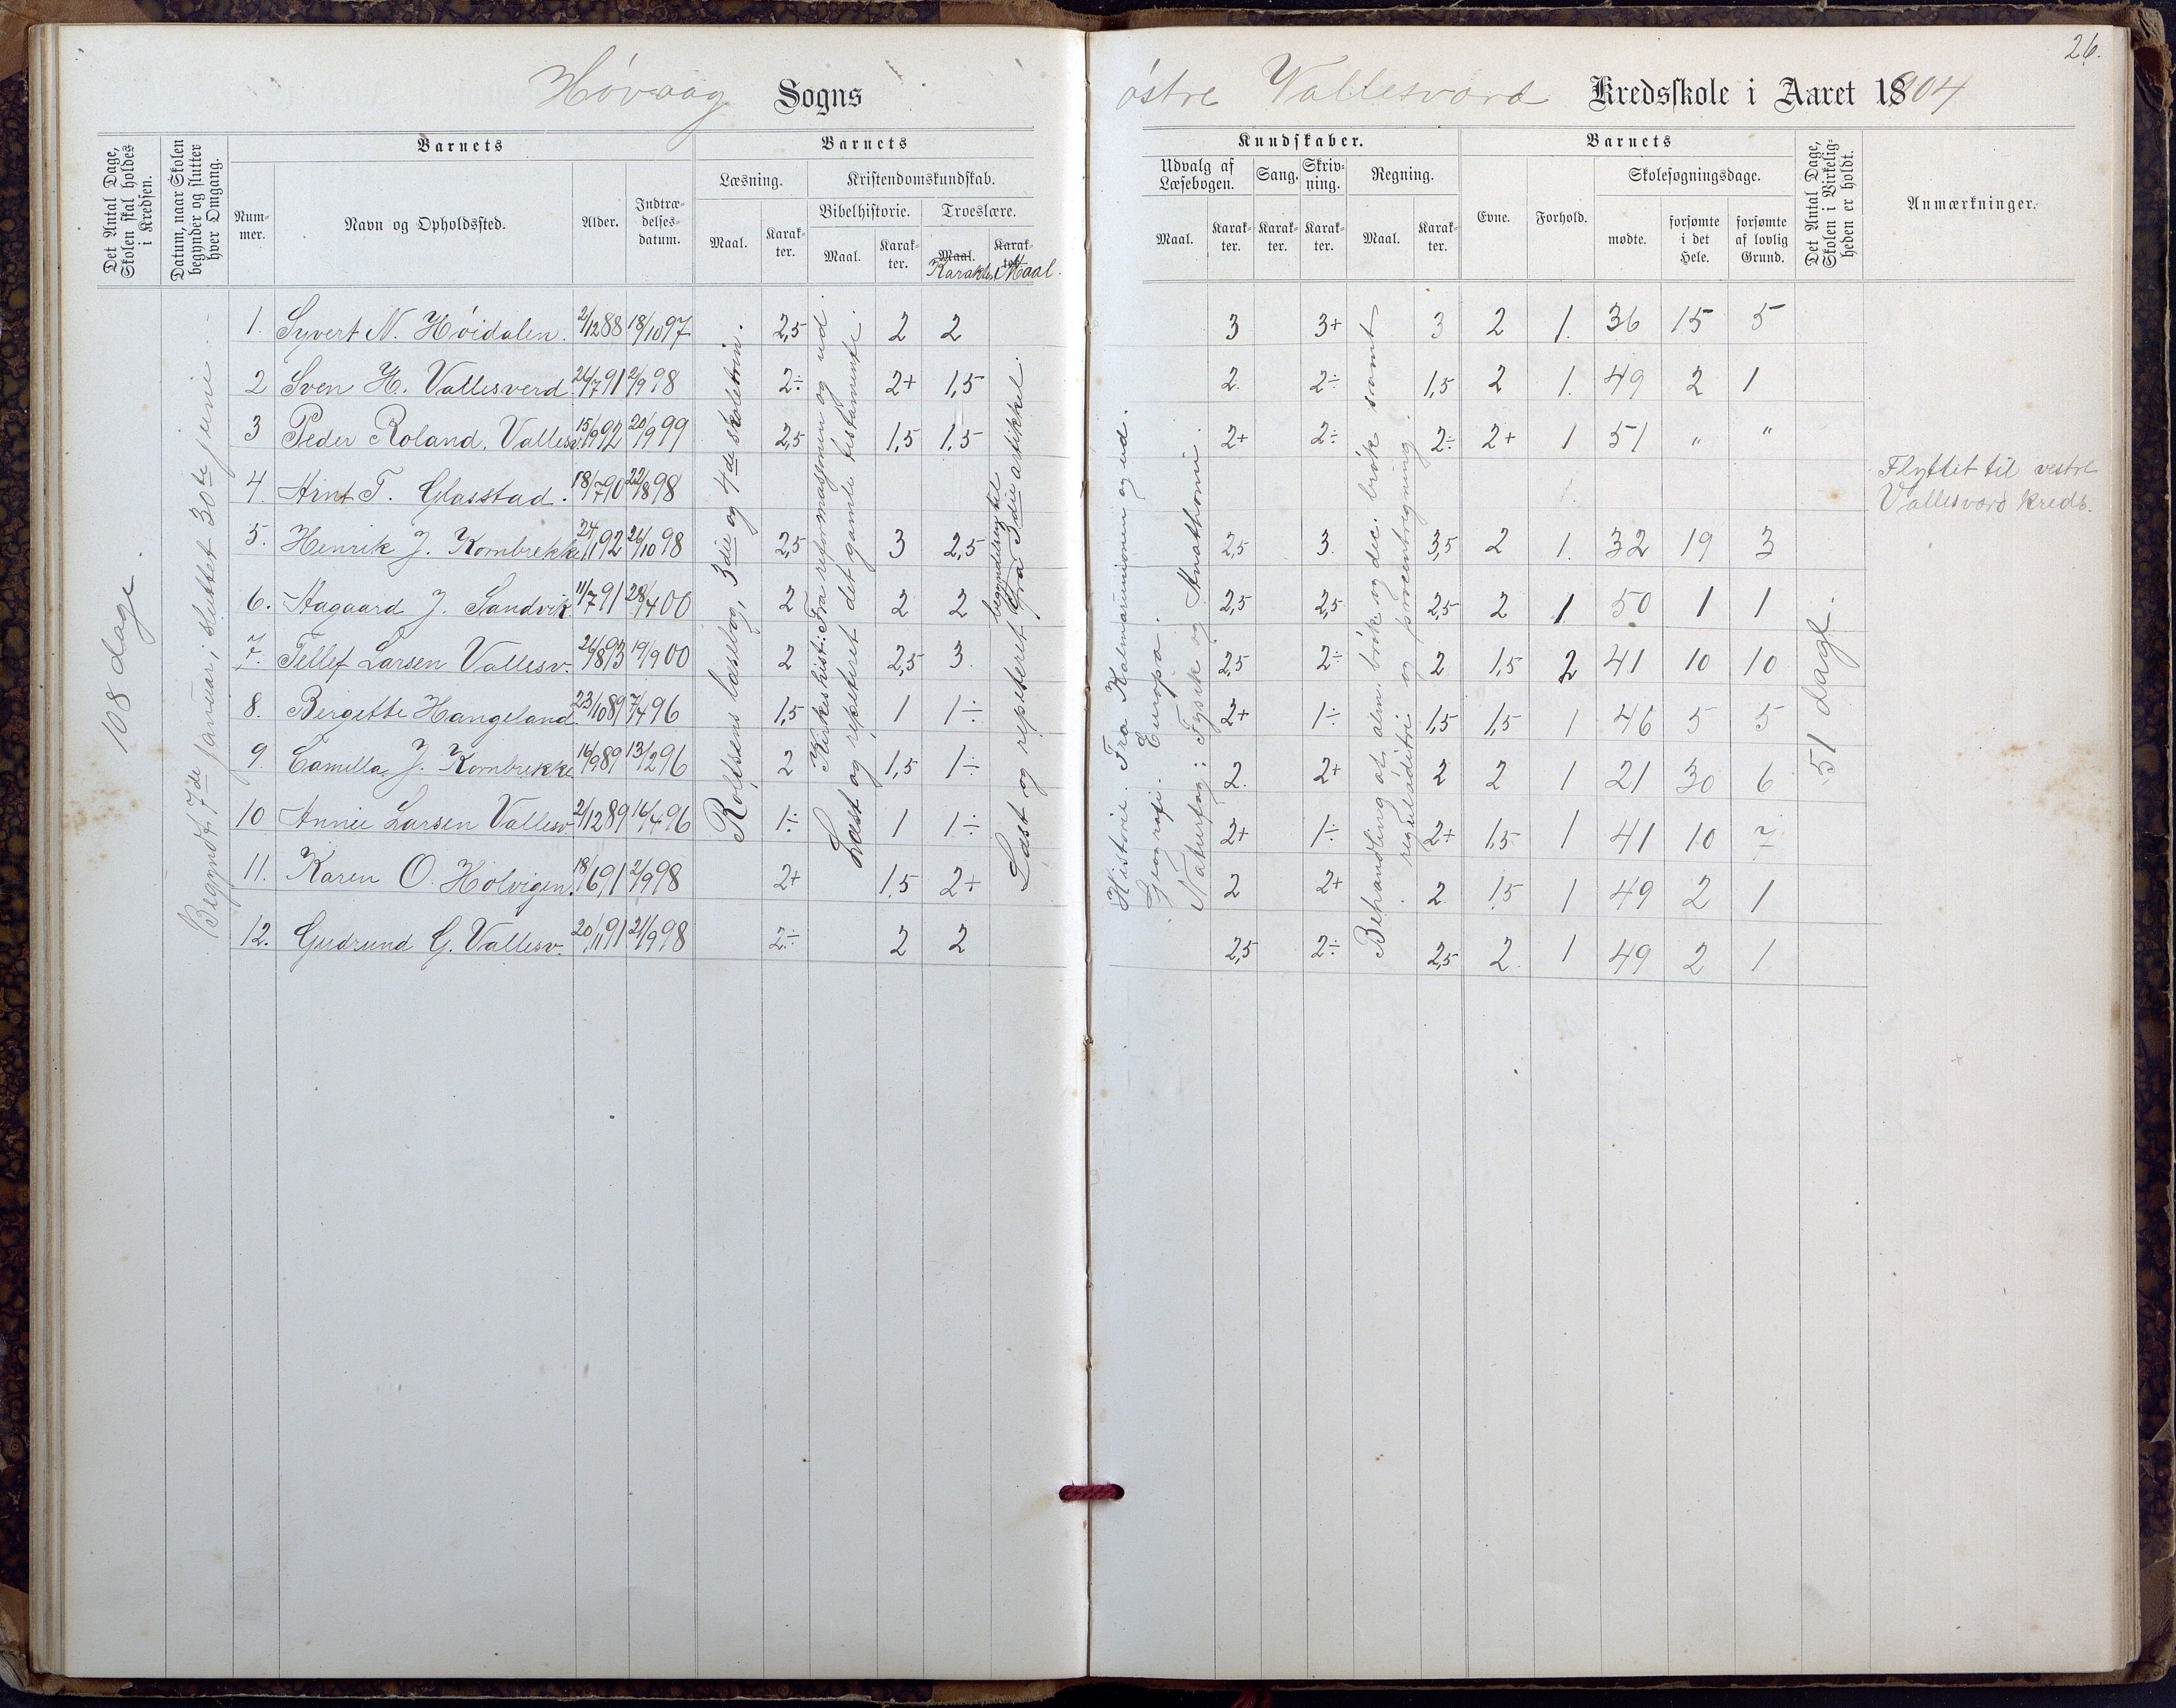 26.
Høvaag Sogns
østre Vallesværd Kredsskole i Aaret 1904
Det Antal Dage, Skolen skal holdes i Kredsen.
Datum, naar Skolen begynder og slutter hver Omgang.
Barnets
Nummer.
Navn og Opholdssted.
Alder.
Indtrædelsesdatum.
Barnets
Læsning.
Maal.
Karakter.
Kristendomskundskab.
Bibelhistorie.
Maal.
Karakter.
Troeslære.
Maal. Karakter.
Karakter Maal.
Kundskaber.
Udvalg af Læsebogen.
Maal.
Karakter.
Sang.
Karakter.
Skrivning.
Karakter.
Regning.
Maal.
Karakter.
Barnets
Evne.
Forhold.
Skolesøgningsdage.
mødte.
forsømte i det Hele.
forsømte af lovlig Grund.
Det Antal Dage, Skolen i Virkeligheden er holdt.
Anmærkninger.
108 dage.
Begyndt 7de januar, sluttet 30te juni.
Rolfsens læsebog, 3die og 4de skoletrin.
Kirkehist: Fra reformasjonen og ud.
Læst og repeteret det gamle testamente.
Læst og repeteret fra begyndelsen til 3die artikkel.
Historie. Fra Kalmarunionen og ud.
Geografi. Europa.
Naturfag: Fysik og Anathomi.
Behandling af alm. brøk og dec. brøk samt
reguladetri og procentregning.
51 dage.
1. Syvert N. Høidalen. 2/12 88 18/10 97 2,5 2 2 3 3+ 3 2 1. 36 15 5
2 Sven H. Vallesverd 26/7 91 2/9 98 2÷ 2+ 1,5 2. 2÷ 1,5 2 1. 49 2 1
3 Peder Roland, Vallesv. 15/9 92 20/9 99 2,5 1,5 1,5 2+ 2÷ 2÷ 2+ 1 51 " "
4. Arnt T. Glasstad. 18/7 90 22/8 98 Flyttet til vestre Vallesværd kreds.
5. Henrik J. Kornbrekke 24/1 92 26/10 98 2,5 3 2,5 2,5 3. 3,5 2 1. 32 19 3
6. Aagaard J. Sandvik 11/7 91 28/4 00 2 2 2 2,5 2,5 2,5 2 1 50 1 1
7. Tellef Larsen Vallesv. 26/8 93 19/9 00 2 2,5 3. 2,5 2÷ 2 1,5 2 41 10 10
8. Bergette Hangeland 23/10 89 7/4 96 1,5 1 1÷ 2+ 1÷ 1,5 1,5 1 46 5 5
9. Camilla J. Kornbrekke 16/9 89 13/2 96 2 1,5 1÷ 2. 2+ 2 2 1 21 30 6
10 Annie Larsen Vallesv. 2/12 89 16/4 96 1÷ 1 1÷ 2+ 1÷ 2+ 1,5 1 41 10 7
11. Karen O. Holvigen. 18/6 91 2/9 98 2+ 1,5 2+ 2 2+ 2 1,5 1 49 2 1
12. Gudrund G. Vallesv. 20/11 91 21/9 98 2÷ 2 2 2,5 2÷ 2,5 2. 1 49 2 1